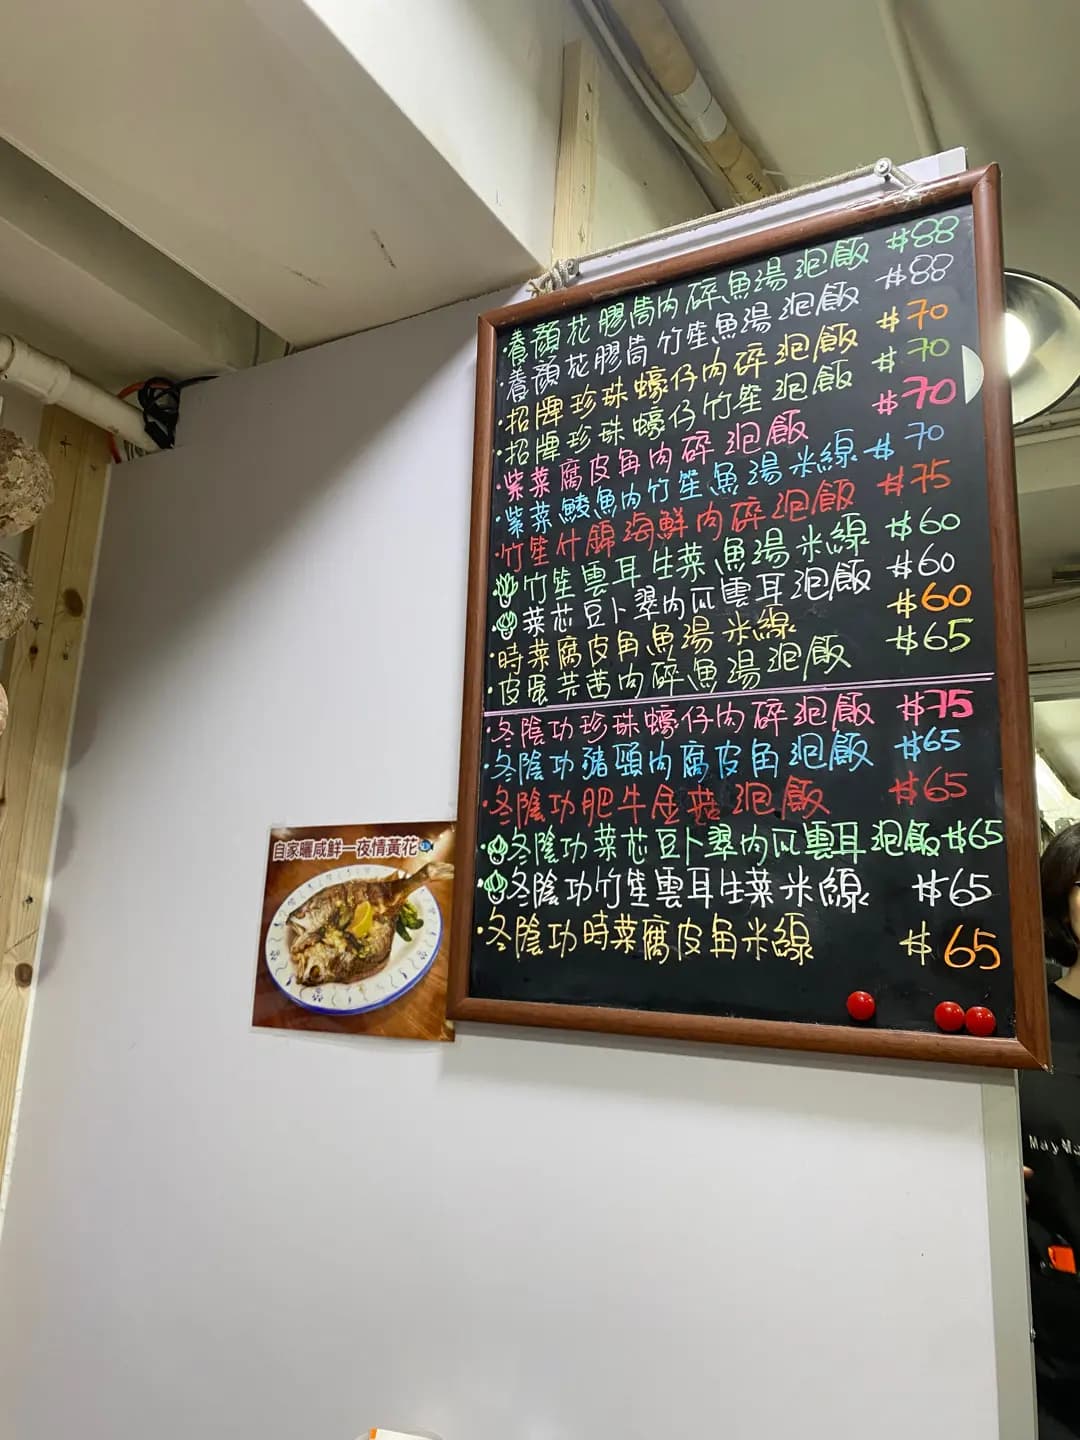 ·養顏花膠茼肉碎魚湯泡飯 $88
·養顏花膠茼竹笙魚湯泡飯 $88
·招牌珍珠蠔仔肉碎泡飯 $70
·招牌珍珠蠔仔竹笙泡飯 $70
·紫菜腐皮角肉碎泡飯 $70
·紫菜鯪魚肉竹笙魚湯米線 $70
·竹笙什錦海鮮肉碎泡飯 $75
竹笙雲耳生菜魚湯米線 $60
菜芯豆卜翠肉瓜雲耳泡飯 $60
·時菜腐皮角魚湯米線 $60
·皮蛋芫茜肉碎魚湯泡飯 $65
·冬陰功珍珠蠔仔肉碎泡飯 $75
·冬陰功豬頸肉腐皮角泡飯 $65
·冬陰功肥牛金菇泡飯 $65
冬陰功菜芯豆卜翠肉瓜雲耳泡飯 $65
冬陰功竹笙雲耳生菜米線 $65
·冬陰功時菜腐皮角米線 $65
自家曬咸鮮一夜情黃花